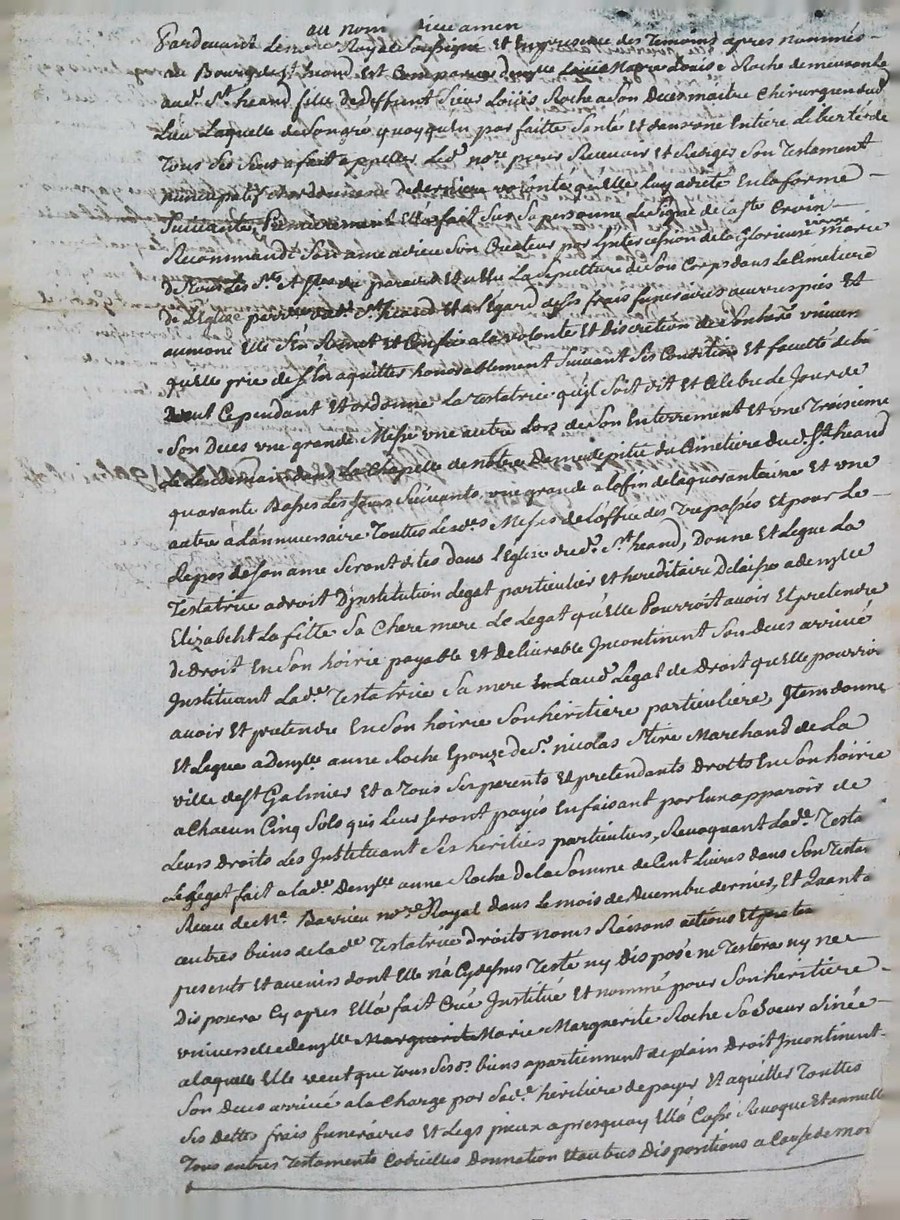 au nom dieu amen
Pardevant Le nore Royal Soussigné Et En presence des Temoins apres nommés
au Bourg de St heand Est Comparüe dempe Louise Roche demeurante
aud. St heand fille de deffunt Sieur Loüis Roche a Son Deces maitre Chirurgien dud.
Lieu Laquelle de Son gré quoyqu'en parfaitte Santé Et dans une Entiere Liberté de
Tous Ses Sens a fait appeller Led. nore pour Recevoir Et Rediger Son Testament
nuncupatif Et ordonnance de derniere volonté qu'elle luy a dicté En la forme
Suivante, Premierement Ella fact Sur Sa personne Le Signe de La Ste Croix
Recommandé Son ame a dieu Son Createur par L'intercession de la Glorieuse vierge marie
de tous Les Sts et Stes du paradis Et a Elu La Sepulture de Son Corps dans Le Cimetiere
de L'Eglise dud. St heand Et a L'egard de Ses frais funeraires œuvres pies Et
aumone Elle S'en Remet Et Confie a la volonté Et discretion de Son here universe
qu'elle prie de S'en aquitter honorablement Suivant Ses Condition Et faculté de bi
Veut Cependant Et ordonne La Testatrice qu'il Soit dit Et Celebré Le Jour de
Son Deces une grande Messe une autre Lors de Son Enterrement Et une Troisieme
Le Lendemain dans La Chapelle de nôtre Dame de pitié du Cimetiere dud. St heand
quarante Basses Les Jours Suivants, une grande a la fin de la quarantaine Et une
autre a L'anniversaire Touttes Lesdes Messes de L'office des Trepassés Et pour Le
Repos de Son ame Seront dites dans L'Eglise dud. St heand, Donne Et Legue La
Testatrice a droit D'institution Legat particulier Et hereditaire Delaisse a demlle
Elizabeht La fitte Sa Chere mere Le Legat qu'Elle Pourroit avoir Et pretendre
de Droit En Son hoirie payable Et delivrable Incontinent Son Deces arrivé
Instituant Lade Testatrice Sa mere En Laud. Legat de Droit qu'elle pourroi
avoir Et pretendre En Son hoirie Son heritiere particuliere, Item donne
Et Legue a Demlle anne Roche Epouze de Sr. nicolas Marchand de La
ville de St Galmier Et a Tous Ses parents Et pretendants Droits En Son hoirie
a Chacun Cinq Sols qui Leur Seront payés En faisant par Eux apparoir de
Leurs Droits Les Instituant Ses heritiers particuliers, Revoquant Lade Testa
Le Legat fait a lade Demlle anne Roche de la Somme de Cent Livres dans Son Testa
Reçu de Me Barrieu nore Royal dans Le mois de decembre dernier, Et Quant a
autres biens de lade Testatrice droits noms Raisons actions Et
presents Et avenirs dont Elle n'a Cy dessus Testé ny Disposé ne Testera ny ne
Disposera Cy apres Ella fait Creé Institué Et nommé pour Son heritiere
universelle demlle Marguerite Marie Marguerite Roche Sa Soeur ainée
a laquelle Elle veut que Tous Sesds biens apartiennent de plain Droit Incontinent
Son Deces arrivé a la Charge par Sade heritiere de payer Et aquitter Touttes
Ses Dettes frais funeraires Et Legs pieux apres quoy Ella Cassé Revoqué Et annullé
Tous autres Testaments Codicilles Donnation Et autres Dispositions a Cause de mor